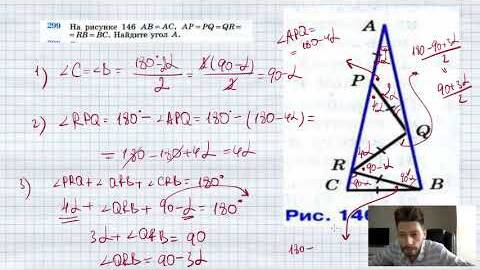 299 На рисунке 146 AB = AC, AP = PQ = QR =
= RB = BC. Найдите угол A.
1) ∠C = ∠B = (180° - 2α)/2 = 2(90 - α)/2 = 90 - α
2) ∠RPQ = 180° - ∠APQ = 180° - (180 - 4α) =
= 180 - 180 + 4α = 4α
3) ∠PRQ + ∠QRB + ∠CRB = 180°
4α + ∠QRB + 90 - α = 180°
3α + ∠QRB = 90
∠QRB = 90 - 3α
∠APQ =
= 180 - 4α
A
P
Q
R
C
B
Рис. 146
180 -
180 - 90 + 3α
2
90 + 3α
2
4α
90 - α